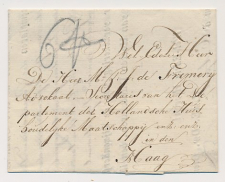 64
Wel Edele Heer
De Heer Mr. J. de Fremery
Advokaat en Secretaris van het De
partement der Hollandsche Huis
houdelijke Maatschappij enz. enz.
in den
Haag